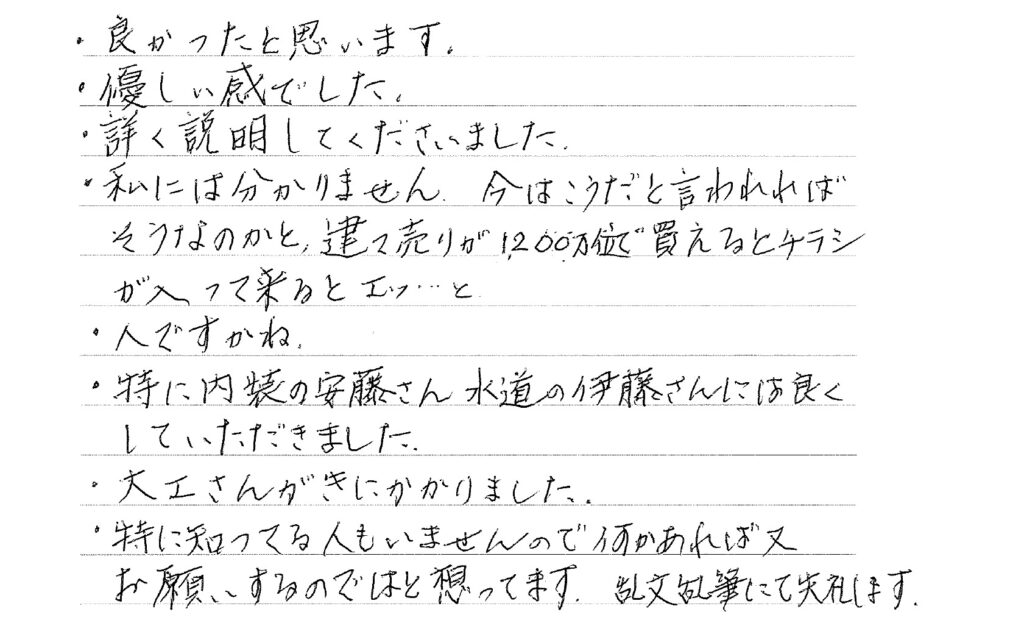 ・良かったと思います。
・優しい感でした。
・詳く説明してくださいました。
・私には分かりません。今はこうだと言われれば
そうなのかと、建て売りが1,200万位で買えるとチラシ
が入って来るとエッ…と
・人ですかね。
・特に内装の安藤さん 水道の伊藤さんには良く
していただきました。
・大工さんがきにかかりました。
・特に知ってる人もいませんので何かあれば又
お願いするのではと想ってます。乱文乱筆にて失礼します。